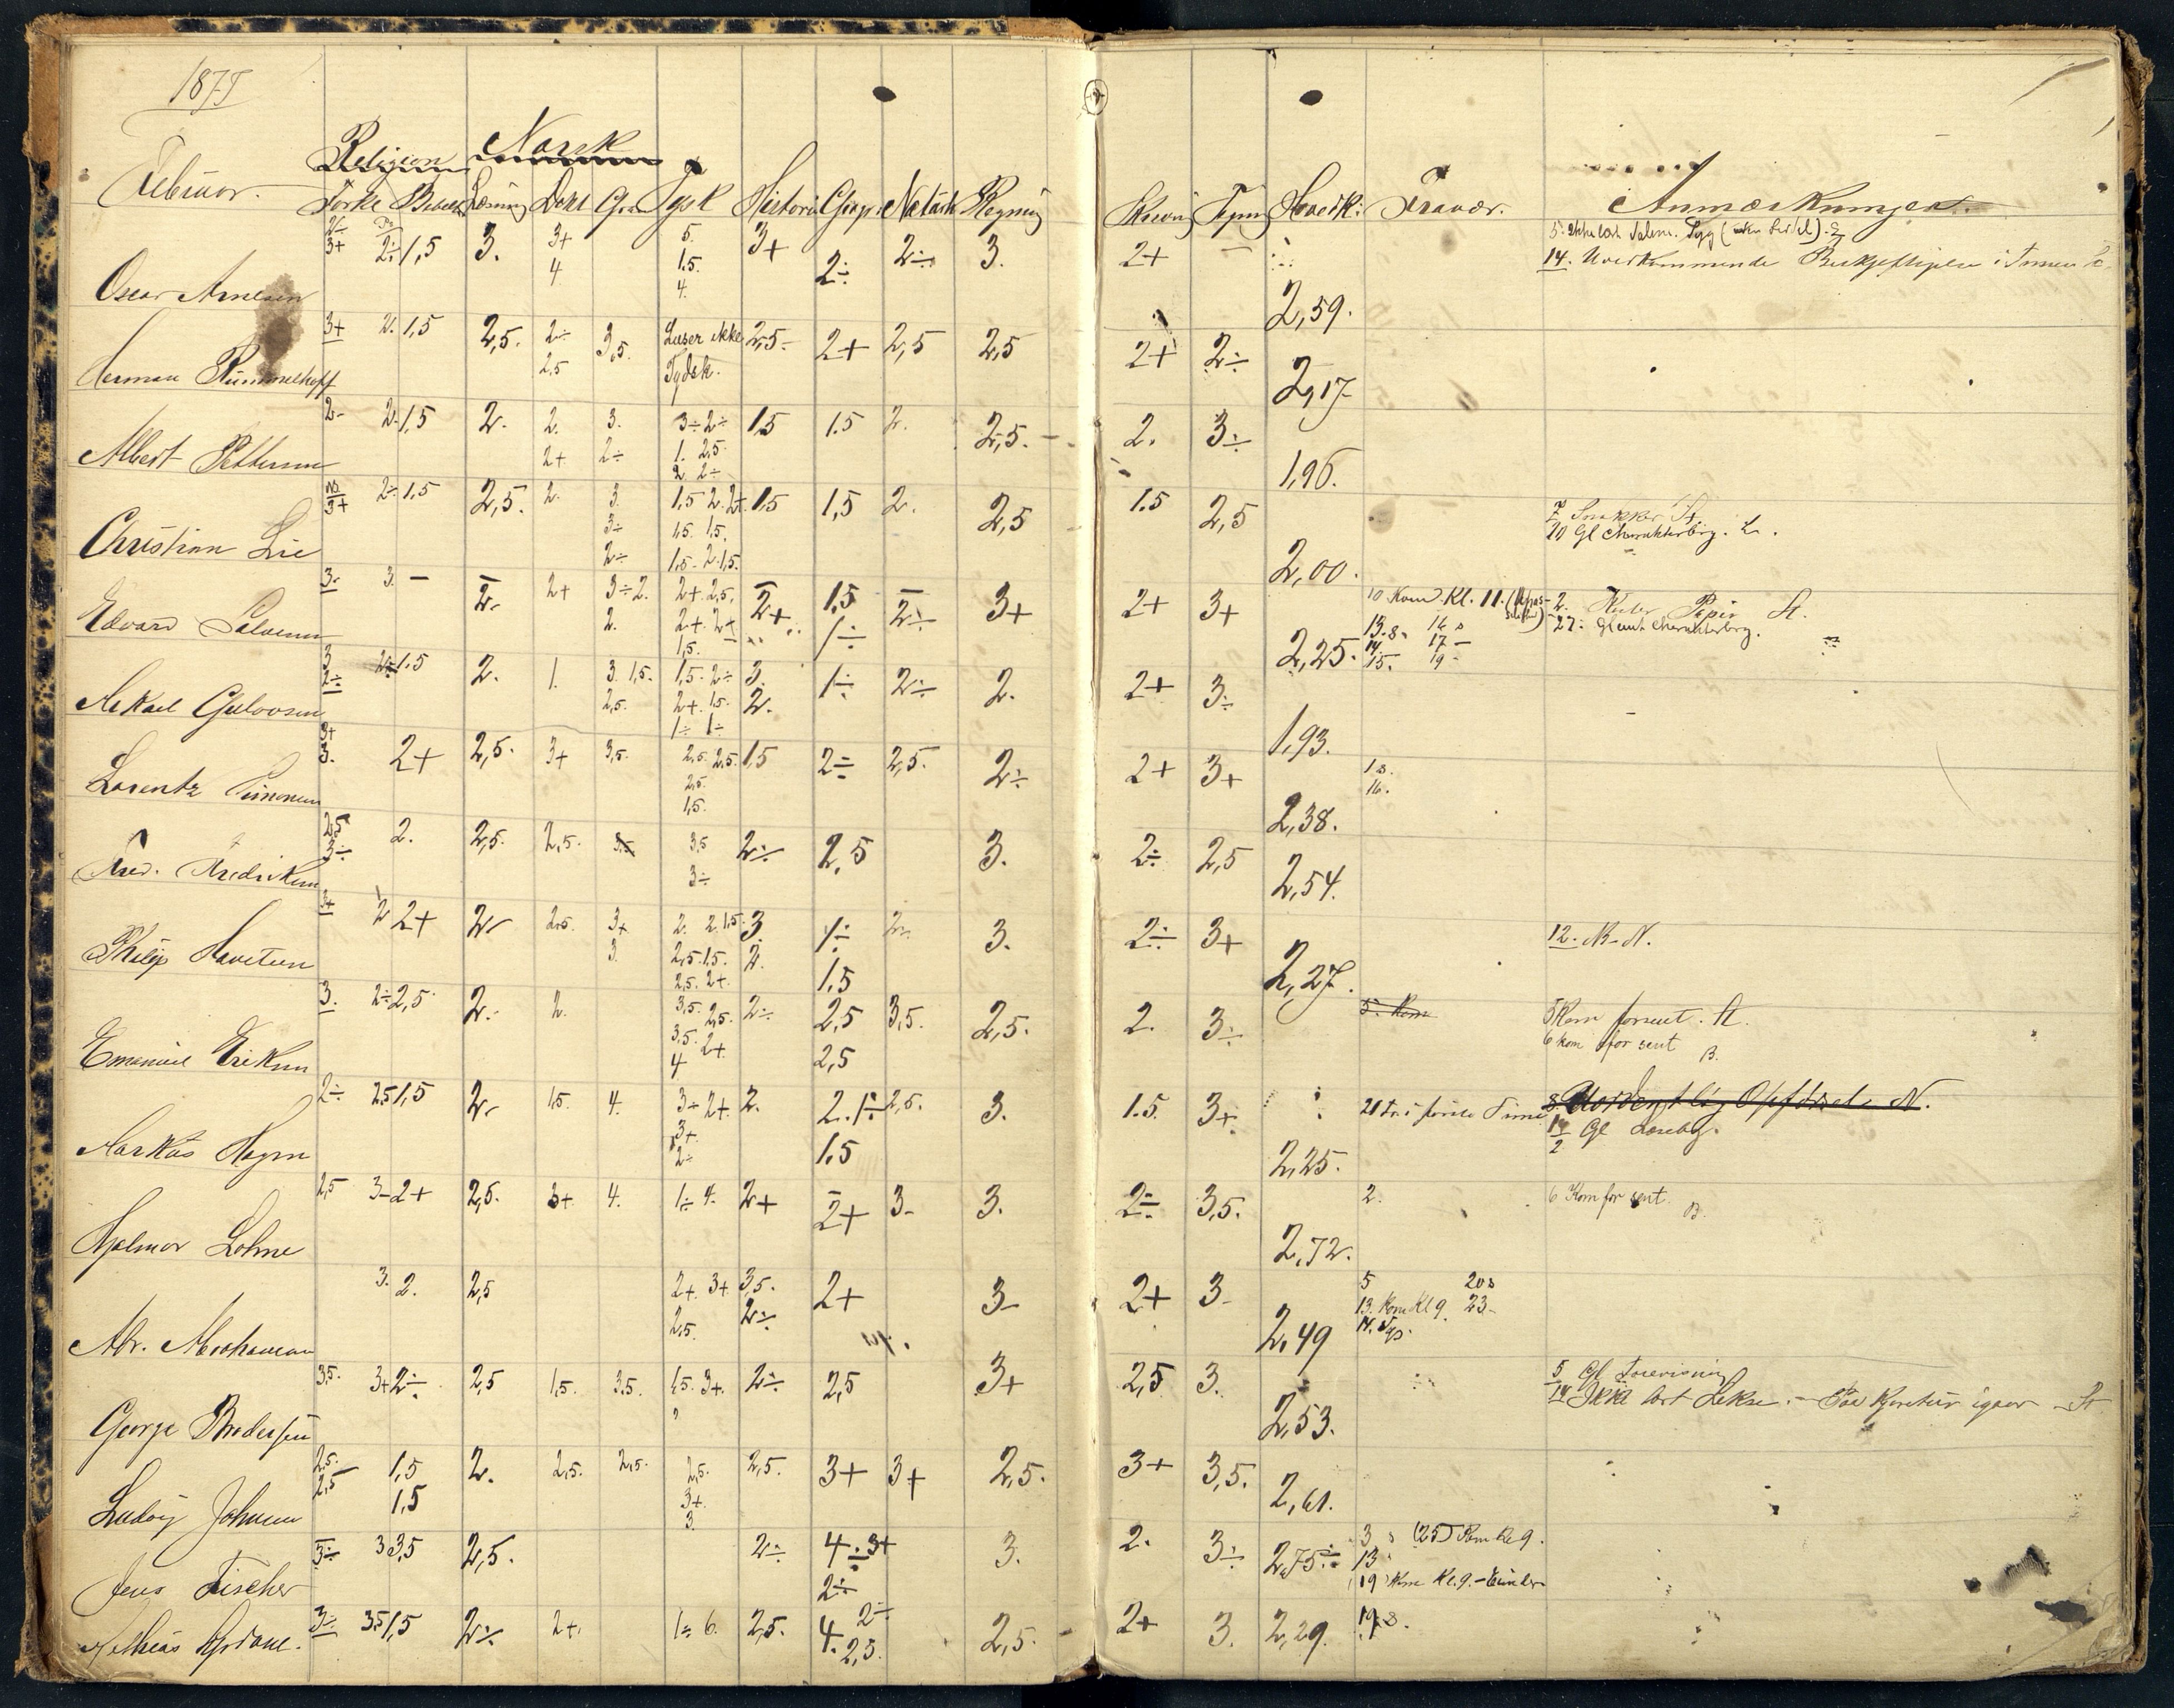 1875
Februar.
Religion Norsk
Forkl Bibelh Læsning Dikt Gram Tysk Historie Geogr Naturh Regning Skrivn Tegn Hovedk: Fravær. Anmærkninger.
Oscar Arnesen 3+ 2÷ 1,5 3. 3+ 4 5. 1.5. 4. 3+ 2÷ 2÷ 3. 2+ 2,59.
14. Uvedkommende Beskjeftigelse i Timen
Herman Rummelhoff 3+ 2. 1,5 2,5. 2÷ 2,5 3,5. Læser ikke Tydsk. 2,5- 2+ 2,5 2,5 2+ 2÷ 2,17
Albert Pettersen 2- 2. 1,5 2. 2. 2+ 3. 2÷ 3÷ 2÷ 1. 2,5. 2. 2÷ 1,5 1.5 2. 2,5. 2. 3÷ 1,96.
Christian Lie 3+ 2÷ 1,5 2,5. 2. 3. 3÷ 2÷ 1,5 2. 2+ 1,5. 1,5. 1,5- 2. 1,5. 1,5 1,5 2. 2,5 1.5 2,5 2,00.
7 Snakker St
20 Gl Charakterbog. L.
Edvard Salvesen 3- 3. - 2- 2+ 3÷ 2. 2. 2+ 2,5. 2+ 2+ 1,5. 2+ 1,5 1÷ 2÷ 3+ 2+ 3+ 2,25.
10 Kom Kl. 11. 13. s. 16 s 14. 17 - 15. 19 -
2. Papir St.
27. Glemt Charakterbog.
3 2÷ 2÷ 1.5 2. 1. 3. 1,5. 2,5. 1,5. 2÷ 2+ 1,5. 1÷ 1÷ 3. 2. 1÷ 2÷ 2. 2+ 3÷ 1,93.
Lorentz Simonsen 3+ 3. 2+ 2,5. 3+ 3,5. 2,5. 2,5. 2,5. 1,5. 1,5 2÷ 2,5. 2÷ 2+ 3+ 2,38. 1.s. 16.
Fred. Fredriksen 2,5 3÷ 2. 2,5. 2,5. 3,5 3,5 3÷ 2÷ 2,5 3. 2÷ 2,5 2,54.
Philip Havsteen 3+ 2 2+ 2- 2,5. 3+ 3. 2. 2. 1,5. 2,5. 1.5. 2,5. 2+. 3. 2. 1÷ 1,5 2. 3. 2÷ 3+ 2,27.
12. M-N.
Emanuel Eriksen 3. 2÷ 2,5. 2. 2. 3,5. 2,5. 3,5. 2+ 4 2÷ 2,5 2,5 3,5. 2,5. 2. 3÷
5. Kom
5 Kom forsent. St.
6 kom for sent B.
Markus Hagen 2÷ 2,5 1,5 2. 1,5. 4. 3÷ 2+. 3+. 2÷ 2. 2. 1÷ 1.5 2,5. 3. 1.5. 3+ 2,25.
21 Fr. i første Time
8. Uordentlig Opførsel N.
Gl Læsebog.
Hjalmar Lohne 2,5 3- 2+ 2,5. 3+ 4. 1÷ 4. 2+ 2+ 3- 3. 2÷ 3,5. 2,72. 2.
6 Kom for sent B.
Abr. Abrahamsen 3. 2. 2,5 2+ 3+ 2,5. 3,5. 2÷ 2+ 3- 2+ 3- 2,49
5 20 s 13. Kom Kl 9. 23- 14. Syg.
George Brodersen 3,5. 3+ 2÷ 2,5 1,5. 3,5. 1,5. 3+. 2÷ 2,5 3+ 2,5 3. 2,53.
5 Gl Forevisning
14 Ikke lært Lekse. - igaar - St
Ludvig Johnsen 2,5. 2,5 1,5 1,5 2. 2,5. 2,5. 2,5. 3+. 3. 2,5. 3+ 3+ 2,5. 3+ 3,5. 2,61.
Jens Fischer 3÷ 3 3,5 2,5. 2÷ 4÷ 3+ 2÷ 3. 2. 3÷ 2,75÷
3 s (25) Kom Kl 9. 13 19 Kom Kl. 9.
Mathias 3÷ 3,5 1,5 2÷ 2+. 1÷ 6. 2,5. 4. 2÷ 2,5. 2,5. 2+ 3. 2,29. 19 s.